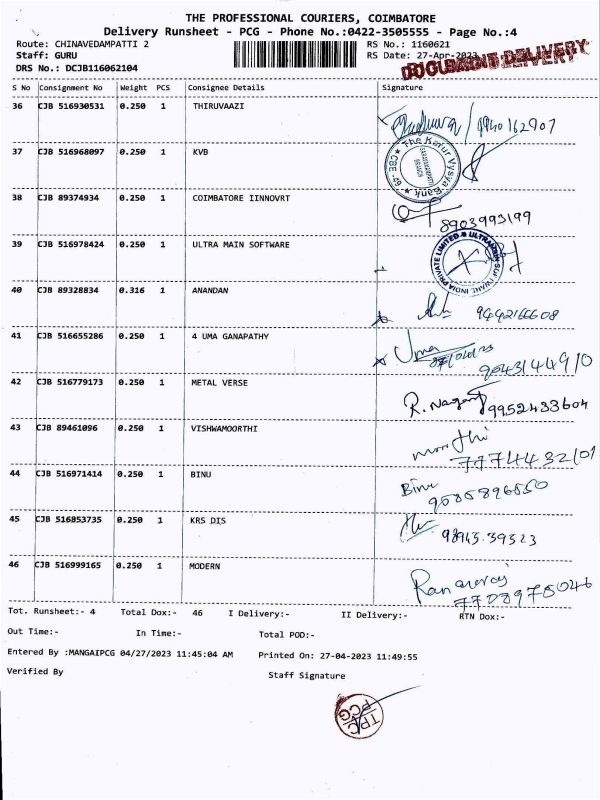 THE PROFESSIONAL COURIERS, COIMBATORE
Delivery Runsheet - PCG - Phone No.:0422-3505555 - Page No.:4
Route: CHINAVEDAMPATTI 2 RS No.: 1160621
Staff: GURU RS Date: 27-Apr-2023
DRS No.: DCJB116062104 DOCUMENT DELIVERY
S No Consignment No Weight PCS Consignee Details Signature
36 CJB 516930531 0.250 1 THIRUVAAZI
37 CJB 516968097 0.250 1 KVB The Karur Vysya Bank
38 CJB 89374934 0.250 1 COIMBATORE IINNOVRT 8903993199
39 CJB 516978424 0.250 1 ULTRA MAIN SOFTWARE
40 CJB 89328834 0.316 1 ANANDAN 9442166608
41 CJB 516655286 0.250 1 4 UMA GANAPATHY Uma 9043144910
42 CJB 516779173 0.250 1 METAL VERSE R. 9952433604
43 CJB 89461096 0.250 1 VISHWAMOORTHI moorthi 7774432101
44 CJB 516971414 0.250 1 BINU Binu
45 CJB 516853735 0.250 1 KRS DIS
46 CJB 516999165 0.250 1 MODERN
Tot. Runsheet:- 4 Total Dox:- 46 I Delivery:- II Delivery:- RTN Dox:-
Out Time:- In Time:- Total POD:-
Entered By :MANGAIPCG 04/27/2023 11:45:04 AM Printed On: 27-04-2023 11:49:55
Verified By Staff Signature
TPC
PCG